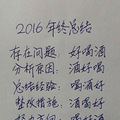 2016年终总结
存在问题：好喝酒
分析原因：酒好喝
总结经验：喝酒好
整改措施：酒喝好